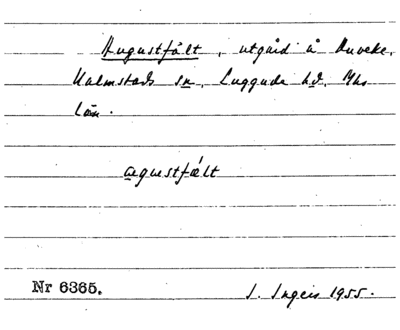 Augustfält, utgård å Duveke,
Halmstads sn, Luggude hd, Mhs
län.
augustfælt
Nr 6365. S. Ingers 1955.